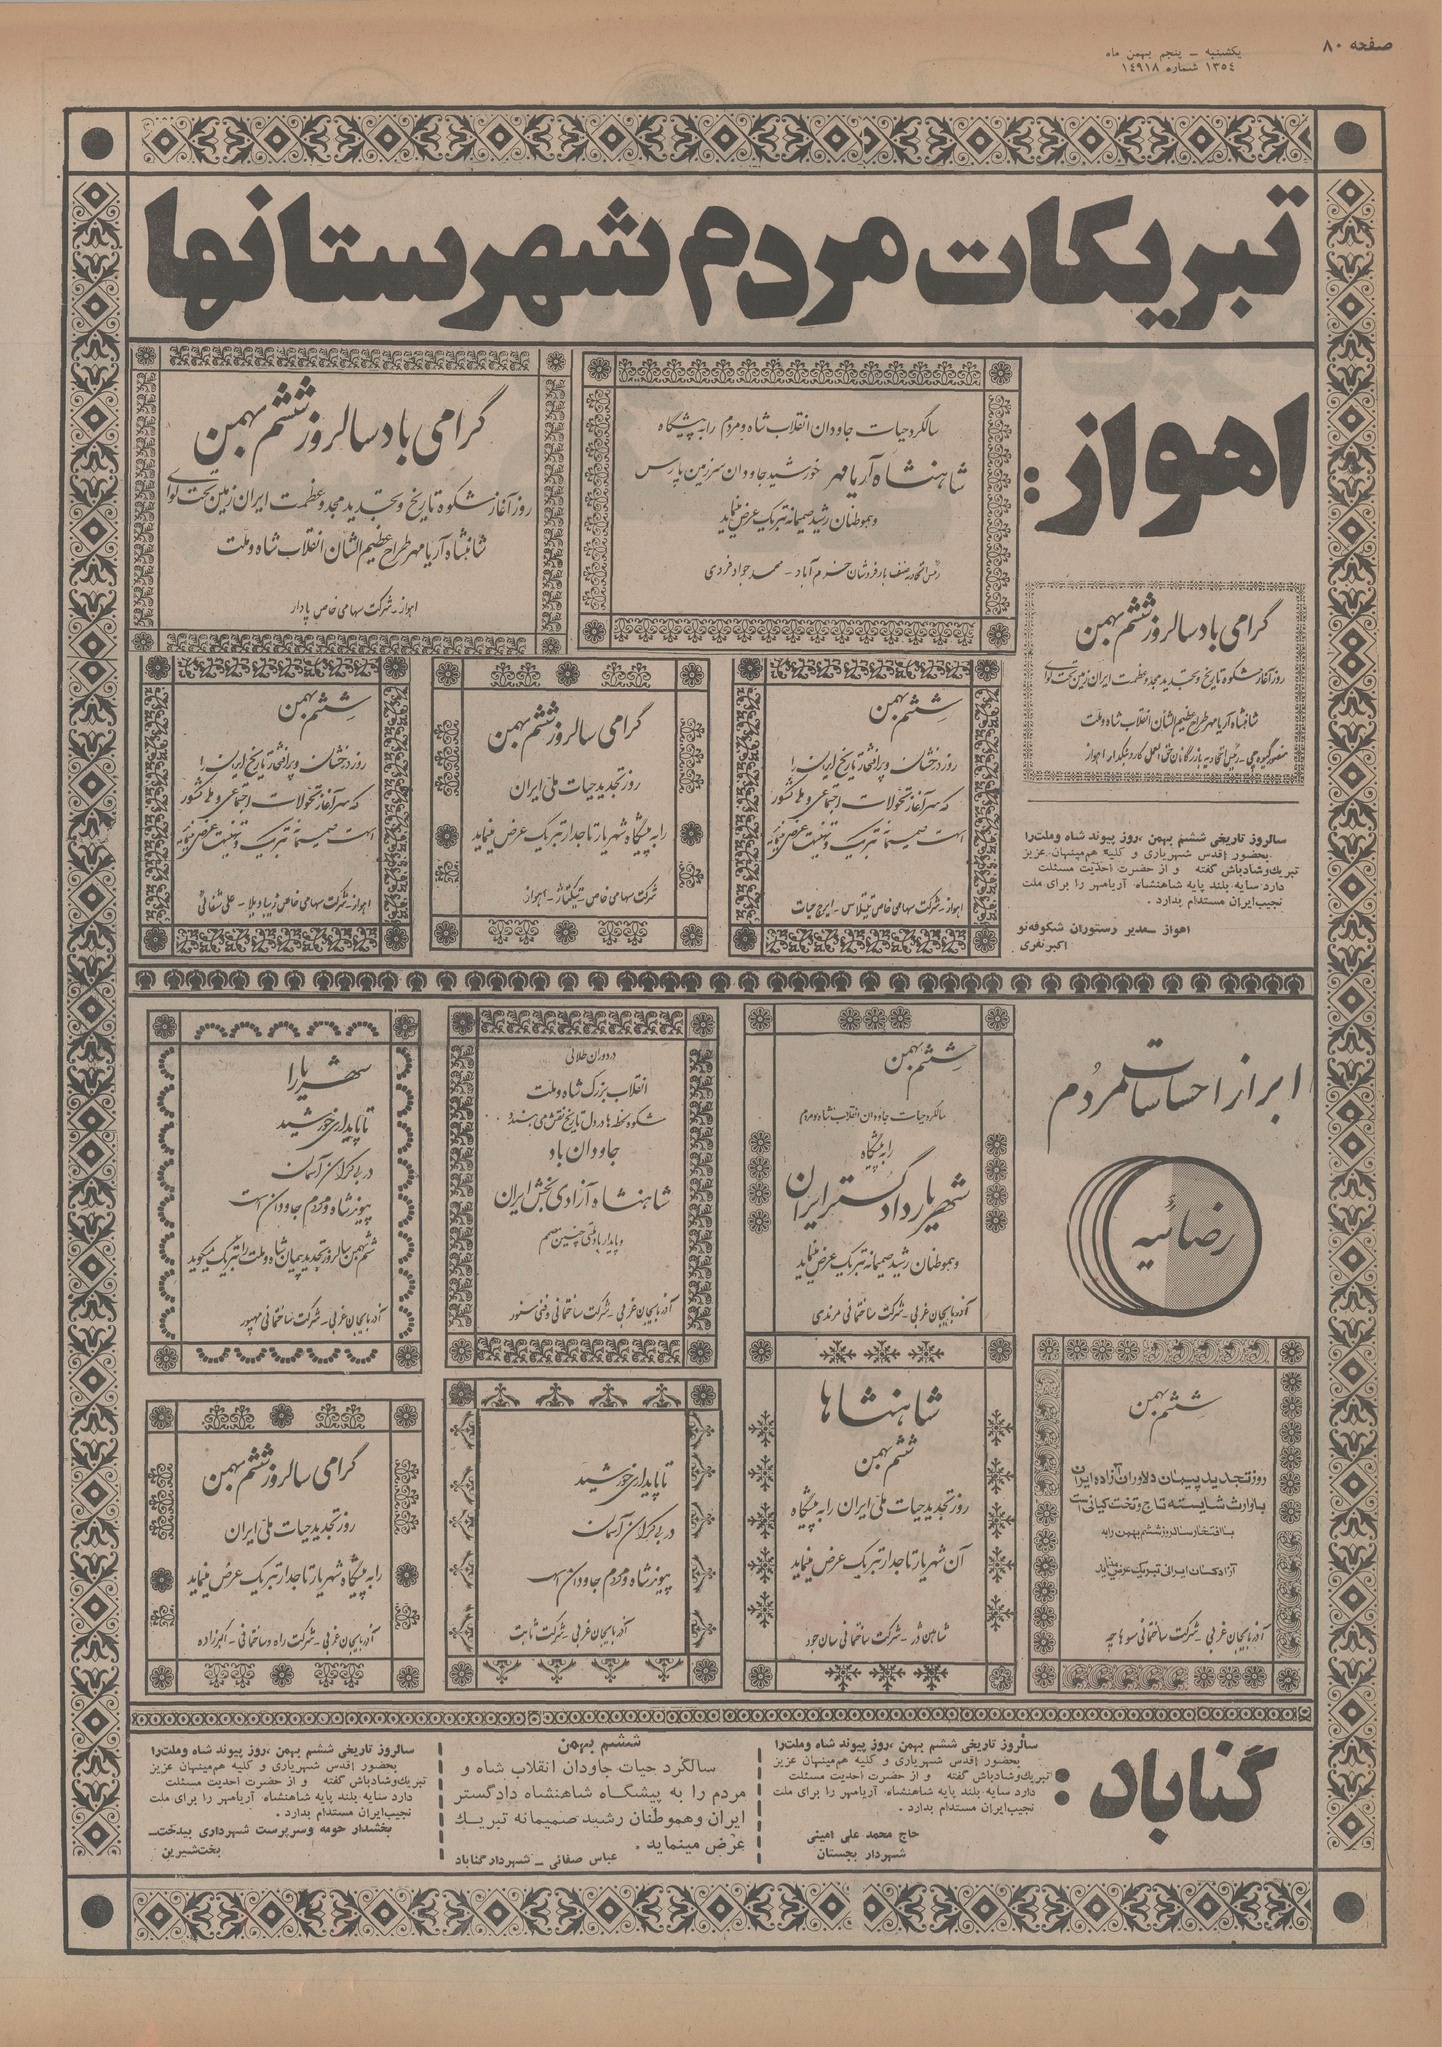 صفحه ۸۰
یکشنبه ـ پنجم بهمن ماه
۱۳۵۴ شماره ۱۴۹۱۸
تبریکات مردم شهرستانها
اهواز:
سالگرد حیات جاودان انقلاب شاه و مردم را به پیشگاه
شاهنشاه آریامهر خورشید جاودان سرزمین پارس
و هموطنان رشید صمیمانه تبریک عرض مینماید
رئیس اتحادیه صنف بارفروشان خرم آباد ـ محمد جواد فردی
گرامی باد سالروز ششم بهمن
روز آغاز شکوه تاریخ و تجدید مجد و عظمت ایران زمین تحت لوای
شاهنشاه آریامهر طراح عظیم الشأن انقلاب شاه و ملت
اهواز ـ شرکت سهامی خاص پادار
گرامی باد سالروز ششم بهمن
روز آغاز شکوه تاریخ و تجدید مجد و عظمت ایران زمین تحت لوای
شاهنشاه آریامهر طراح عظیم الشأن انقلاب شاه و ملت
رئیس اتحادیه بازرگانان حق العمل کار و بنکدار اهواز
سالروز تاریخی ششم بهمن ،روز پیوند شاه وملت‌را
بحضور اقدس شهریاری و کلیه هم‌میهنان عزیز
تبریك‌وشادباش گفته و از حضرت احدیت مسئلت
دارد سایه بلند پایه شاهنشاه آریامهر را برای ملت
نجیب‌ایران مستدام بدارد .
اهواز ـ مدیر رستوران شکوفه‌نو
اکبر نفری
ششم بهمن
روز درخشان و پر افتخار تاریخ ایران را
که سرآغاز تحولات اجتماعی و ملی کشور
است صمیمانه تبریک و تهنیت عرض مینماید
اهواز ـ شرکت سهامی خاص تیلاس ـ ایرج حیات
گرامی سالروز ششم بهمن
روز تجدید حیات ملی ایران
را به پیشگاه شهریار تاجدار تبریک عرض مینماید
شرکت سهامی خاص ـ اهواز
ششم بهمن
روز درخشان و پر افتخار تاریخ ایران را
که سرآغاز تحولات اجتماعی و ملی کشور
است صمیمانه تبریک و تهنیت عرض مینماید
اهواز ـ شرکت سهامی خاص زیبا ویلا ـ علی شفائی
ابراز احساسات مردم
رضائیه
ششم بهمن
سالگرد حیات جاودان انقلاب شاه و مردم
را به پیشگاه
شهریار دادگستر ایران
و هموطنان رشید صمیمانه تبریک عرض مینماید
آذربایجان غربی ـ شرکت ساختمانی مرندی
در دوران طلائی
انقلاب بزرگ شاه و ملت
شکوه لحظه ها در دل تاریخ نقش می بندد
جاودان باد
شاهنشاه آزادی بخش ایران
و پایدار باد ملتی چنین مصمم
آذربایجان غربی ـ شرکت ساختمانی و فنی سنور
شهریارا
تا پایداری خورشید
در بی کران آسمان
پیوند شاه و مردم جاودان است
ششم بهمن سالروز تجدید پیمان شاه و ملت را تبریک میگوید
آذربایجان غربی ـ شرکت ساختمانی مهپور
ششم بهمن
روز تجدید پیمان دلاوران آزاده ایران
با وارث شایسته تاج و تخت کیانی است
با افتخار سالروز ششم بهمن را به
آزادگان ایرانی تبریک عرض مینماید
آذربایجان غربی ـ شرکت ساختمانی
شاهنشاها
ششم بهمن
روز تجدید حیات ملی ایران را به پیشگاه
آن شهریار تاجدار تبریک عرض مینماید
شاهین دژ ـ شرکت ساختمانی سان جود
تا پایداری خورشید
در بی کران آسمان
پیوند شاه و مردم جاودان است
آذربایجان غربی ـ شرکت ثابت
گرامی سالروز ششم بهمن
روز تجدید حیات ملی ایران
را به پیشگاه شهریار تاجدار تبریک عرض مینماید
آذربایجان غربی ـ شرکت راه و ساختمانی ـ اکبرزاده
گناباد:
سالروز تاریخی ششم بهمن ،روز پیوند شاه وملت‌را
بحضور اقدس شهریاری و کلیه هم‌میهنان عزیز
تبریك‌وشادباش گفته و از حضرت احدیت مسئلت
دارد سایه بلند پایه شاهنشاه آریامهر را برای ملت
نجیب‌ایران مستدام بدارد .
حاج محمد علی امینی
شهردار بجستان
ششم بهمن
سالگرد حیات جاودان انقلاب شاه و
مردم را به پیشگاه شاهنشاه دادگستر
ایران وهموطنان رشید صمیمانه تبریك
عرض مینماید .
عباس صفائی ـ شهردار گناباد
سالروز تاریخی ششم بهمن ،روز پیوند شاه وملت‌را
بحضور اقدس شهریاری و کلیه هم‌میهنان عزیز
تبریك‌وشادباش گفته و از حضرت احدیت مسئلت
دارد سایه بلند پایه شاهنشاه آریامهر را برای ملت
نجیب‌ایران مستدام بدارد .
بخشدار حومه وسرپرست شهرداری بیدخت ـ
بخت‌شیرین